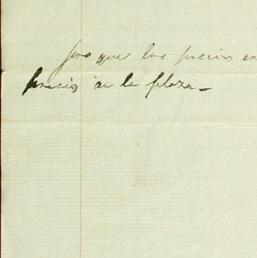 pero que los precios en
precios de la plaza_